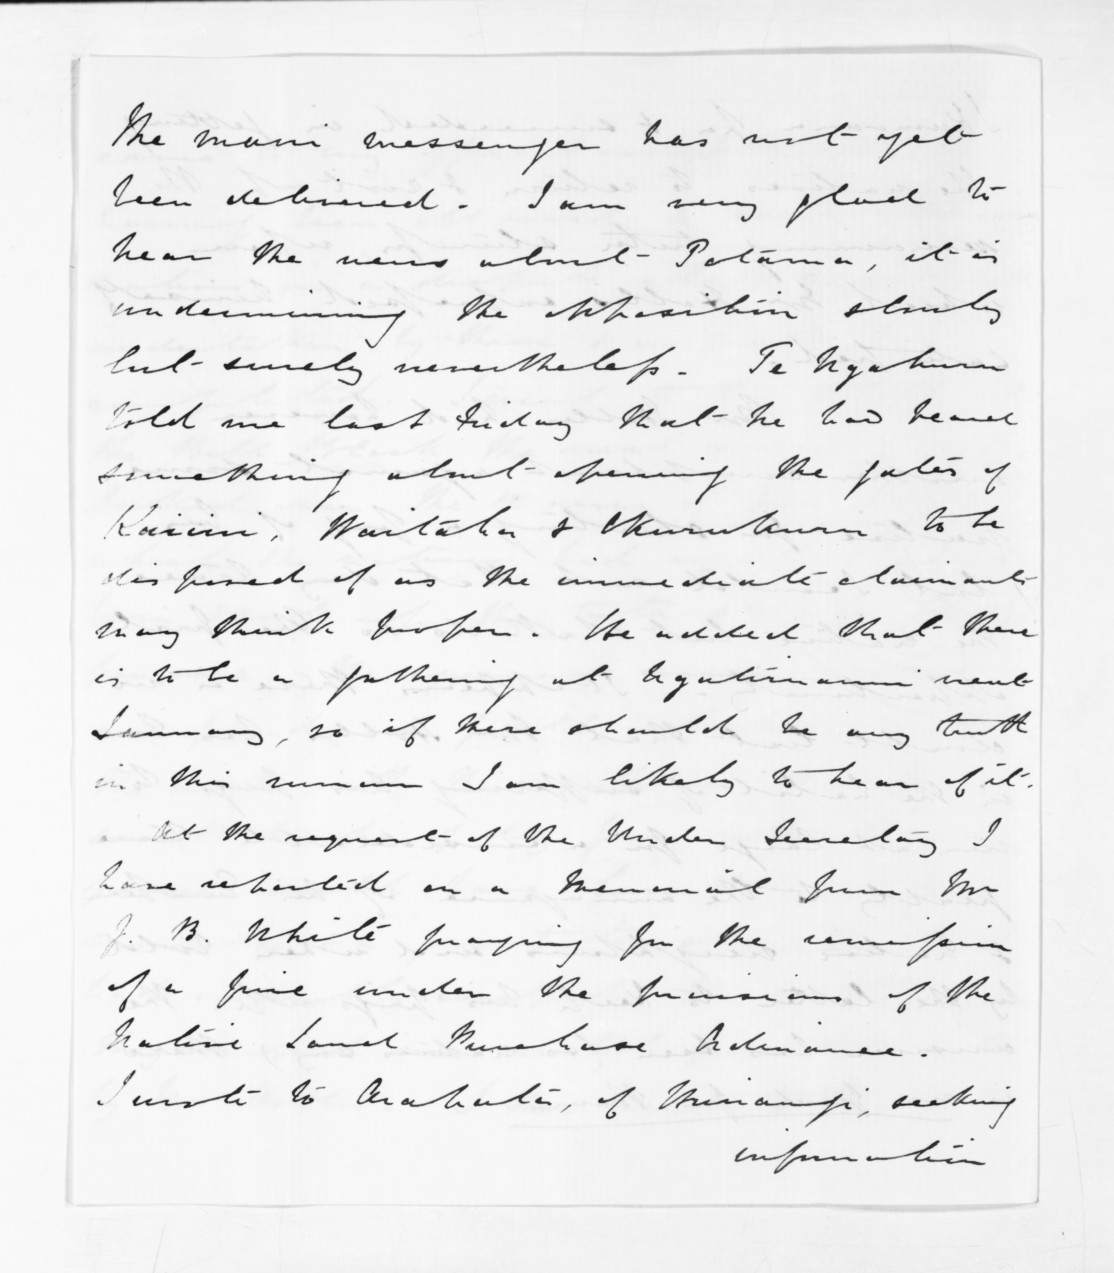 The maori messenger has not yet
been delivered. I am very glad to
hear the news about Potama, it is
undermining the opposition slowly
but surely nevertheless. Te Ngahuru
told me last Friday that he had heard
something about opening the gates of
Kaiwi, Waitaha & Okurukuru to be
disposed of as the immediate claimants
may think proper. He added that there
is to be a gathering at Ngatimaru next
January, so if there should be any truth
in this rumour I am likely to hear of it.
At the request of the Under Secretary I
have reported on a Memorial from Mr
J. B. White praying for the remission
of a fine under the provisions of the
Native Land Purchase Ordinance.
I wrote to Arahata, of seeking
information